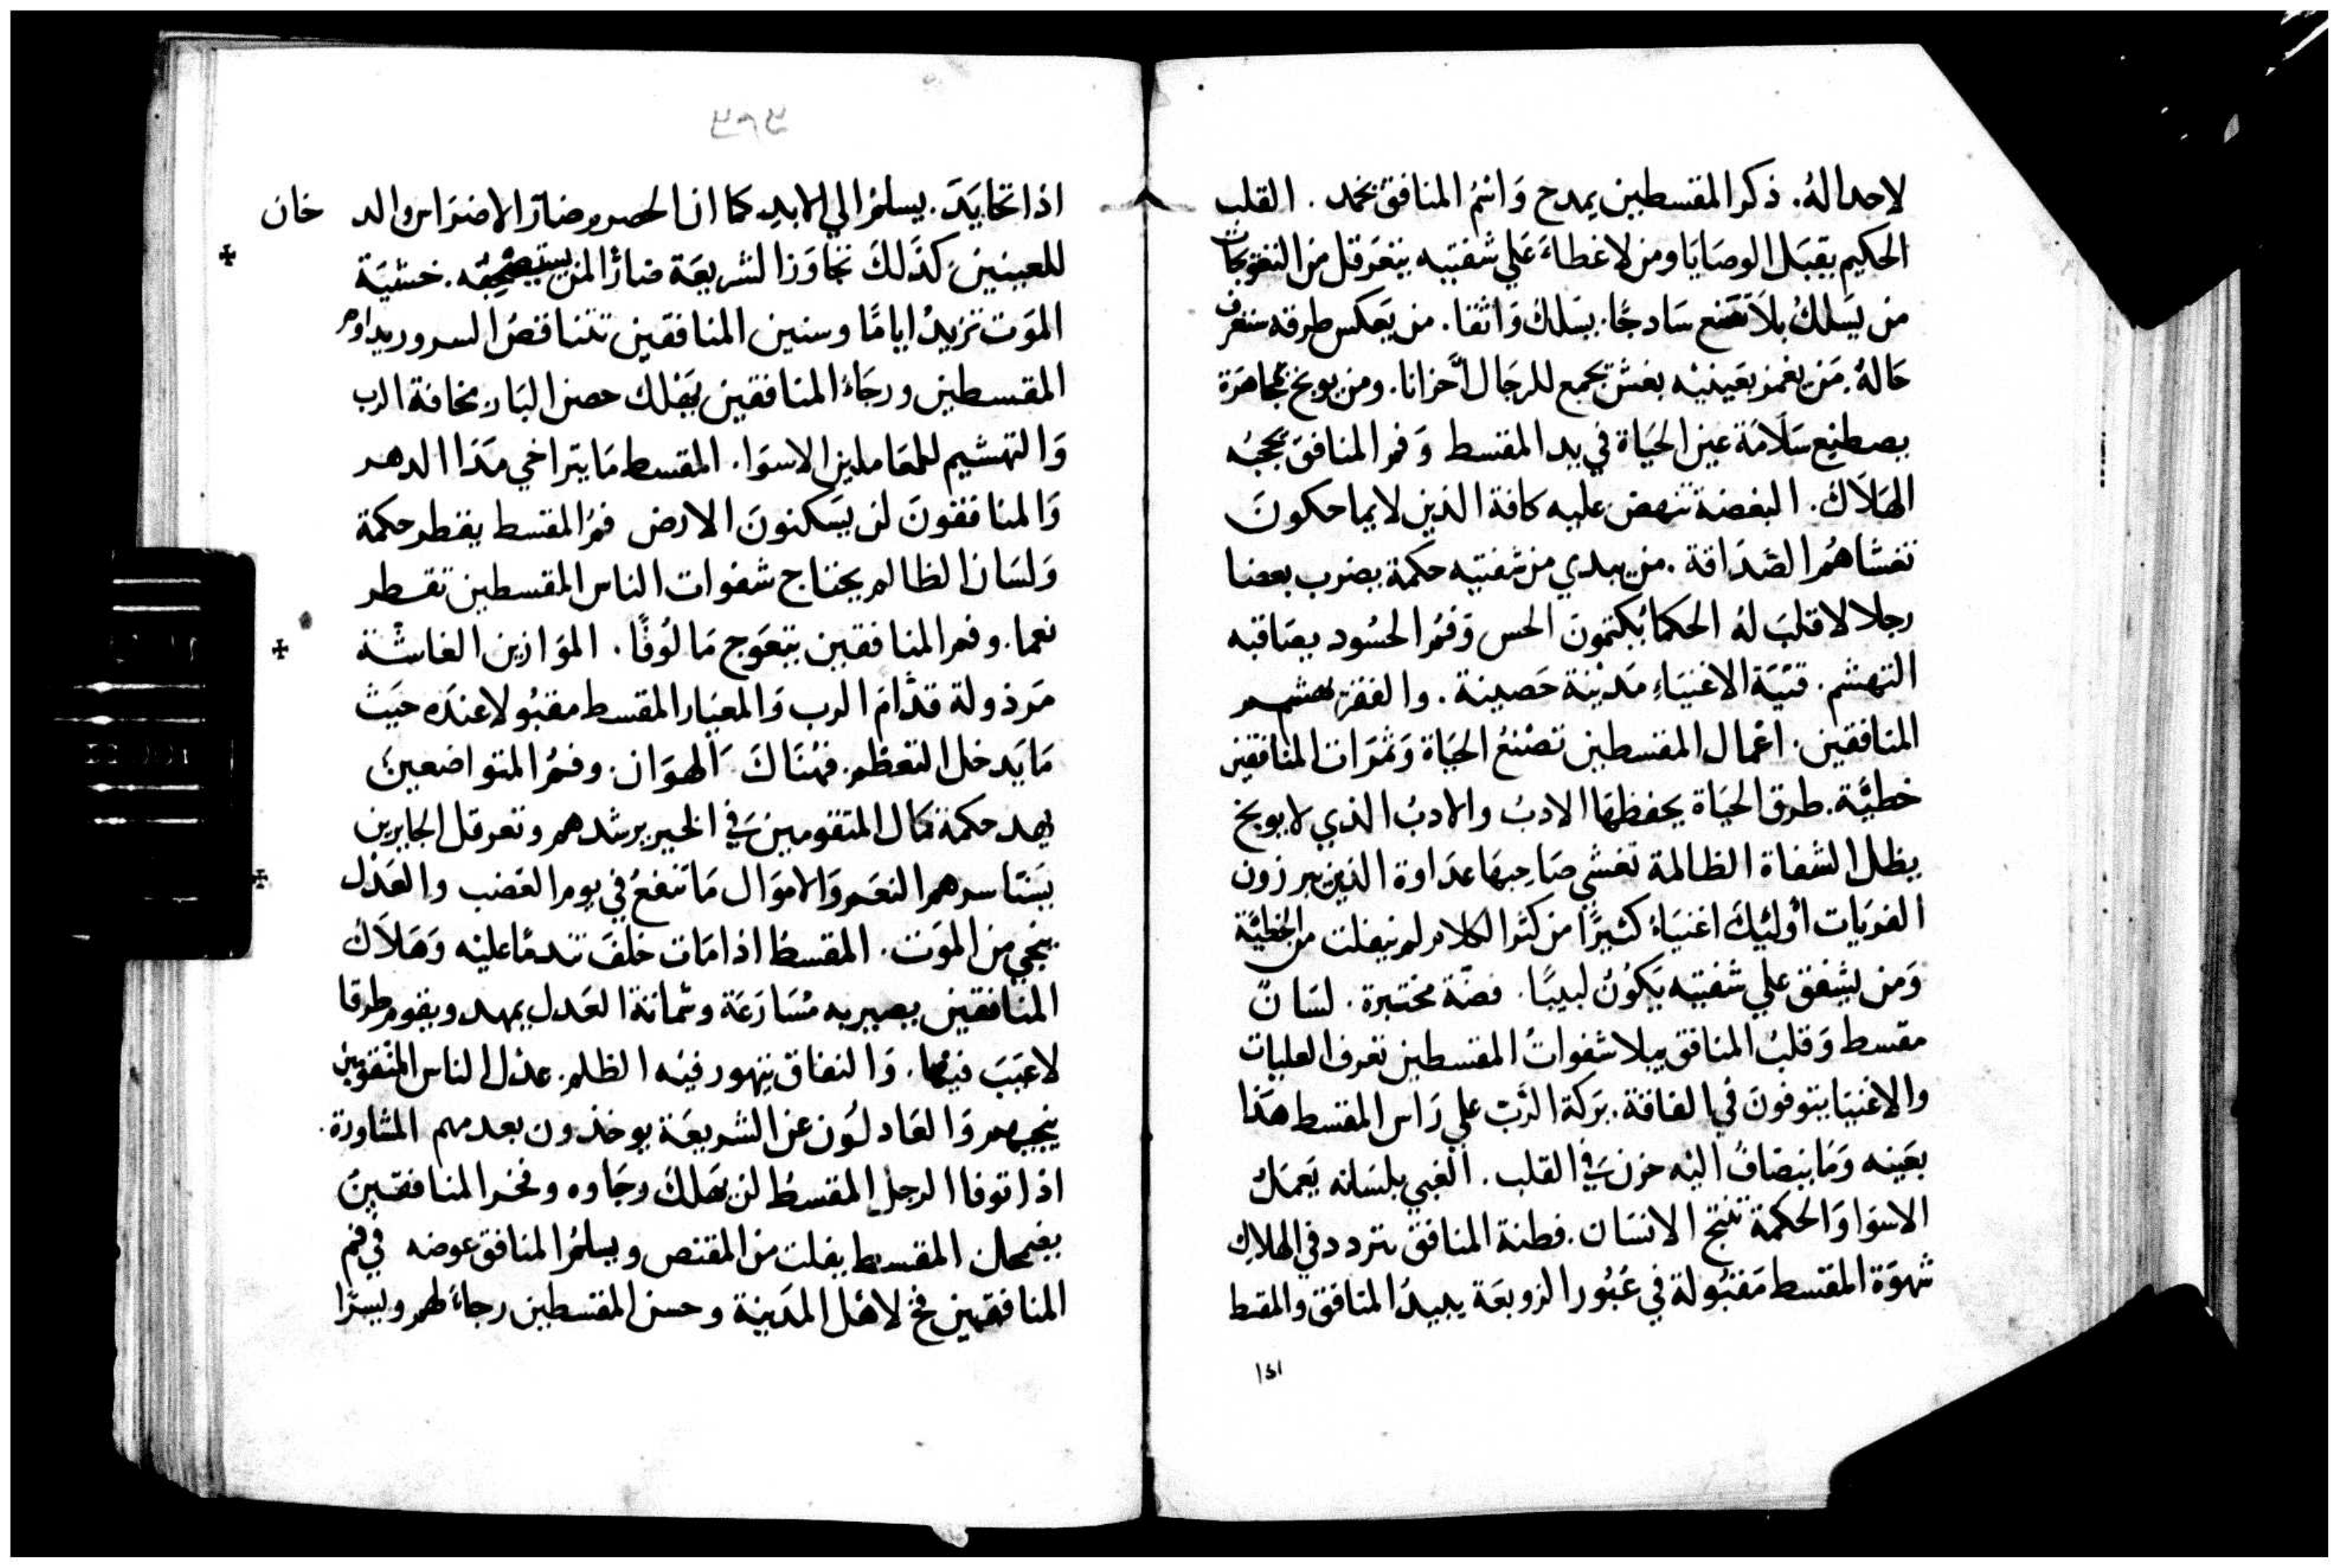 لاحداله. ذكر المقسطين يمدح وَانتمُ المنافق يخمد. القلب
الحكيم يقبَل الوصَايَا ومن لاغطاءَ عَلي شفتيه يتعَرقل من التعَويجات
من يَسلكُ بلاَ تصَنع سَادجًا. يسَلك وَاثقا. من يَعكس طرقه ستعرف
حَالهُ. مَن يغمز بعَينيْه بغش يجمع للرجَال أحزانا. ومن يوبخ بمجاهَرة
يصطنع سَلاَمَة عين الحيَاة في يد المقسط وَفم المنافق يحجبُه
الهَلاَكَ. البغضة تنهض عليه كافة الذين لا يماحكونَ
تغشاهُم الصَدَاقة. من يبدي من شفتيه حكمة يضرب بعضا
رجلا لا قلبَ لهُ الحكمَا يُكتمونَ الحس وَفمُ الحسُود يصَاقبه
التهشم. قنيَة الاغنيَاءِ مَديْنة حَصينة. والفقر تهشم
المنافقين. اعمال المقسطين تصْنعُ الحيَاة وَثمَرَات المنافقين
خطيَّة. طرق الحيَاة يحفظهَا الادبُ والادبُ الذي لا يوبخ
يظل الشفاة الظالمة تغشي صَاحِبهَا عدَاوة الذين يبرزون
الغويَات أولئيكَ اغنيَاءُ كثيرًا من كثر الكلام لم يفلت من الخطيَّة
وَمَن يشفق علي شفتيه يَكوُنُ لبيبًا. فضّة مختبرة. لسَانٌ
مقسط وَقلبُ المنافق يبلا شفواتُ المقسطين تعَرف العليات
والاغنيَا يتوفونَ في الفاقة. بَركة الرَّبّ علي رَاس المقسط هَذا
بعَينه وَمَا ينضَافُ اليْه حزن َفي القلب. الغبي بلسَانه يَعمَلُ
الاسوَا وَالحكمة تنتج الانسَان. فطنة المنافق تتردد في الهلاك
شهوَة المقسط مَقبُولة في عَبُور الزوبعَة يبيدُ المنافق والمقسط
١٤١
اذا تحايَدَ. يسلمُ الي الابدِ كما ان الحصرم ضارّ الاضرَاس والدخان
للعَينين. كذَلكَ تجَاوَز الشريعَة ضارًا لمن يستصحبه. خشيَة
الموَت تزيدُ ايامًا وسنين المنافقين تتناقصُ السرور يداوم
المقسطين ورجَاءُ المنافقين يَهلك حصن البَار مخافة الرب
وَالتهشيم للمعَاملين الاسوَا. المقسط مَا يتراخي مَدَا الدهر
وَالمنافقونَ لن يسَكنونَ الارض فمُ المقسط يقطر حكمة
وَلسَان الظالم يجتاح شفوات الناس المقسطين تقطر
نعما. وفم المنافقين يتعَوج مَالُوفًا. الموَازين الغاشْة
مَرذولة قدَّامَ الرب وَالمعيَار المقسط مقبُولا عندَه حيَث
مَا يَدخل التعظم. فهُنَاكَ الهوَان. وفمُ المتواضعين
يهد حكمة كمال المتقومين َفي الخير يرشدهم وتعرقل الجايرين
يسَتاسرهم النعَم وَالاموَال مَا تنفعُ في يوم الغضب والعَدْل
ينجي من الموَت. المقسط اذا مَات خلفَ تندمًا عليْه وَهَلاَك
المنافقين يصير به مُسَارَعَة وشماتة العَدل يمهد ويقوم طرقا
لا عَيبَ فيها. وَالنفاق يتهور فيْه الظلم. عدْل الناس المتقومين
ينجيهم وَالعَادلُون عن الشريعَة يوخذون بعدمهم المشاورة.
اذا توفا الرجل المقسط لن يَهلكَ رجَاوه وفخر المنافقين
يضمحل المقسط يفلت من المقتنص ويسلمُ المنافق عوضه في فم
المنافقين فخ لاهْل المَدينة وحسن المقسطين رجاءً لهم ويسرًا